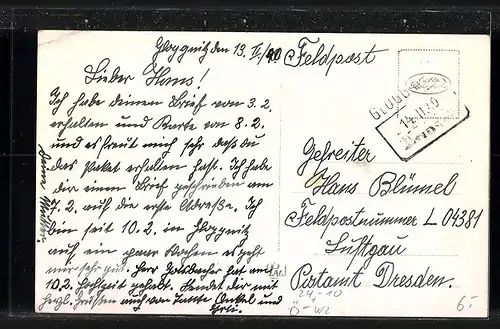 Gloggnitz den 13. II/40
Lieber Hans!
Ich habe deinen Brief vom 3.2.
erhalten und Karte vom 8.2.
und es freut mich sehr daß du
das Paket erhalten hast. Ich habe
dir einen Brief geschrieben am
7.2. auf die erste Adresse. Ich
bin seit 10.2. in Gloggnitz
auf ein paar Wochen es geht
mir sehr gut. Herr hat am
10.2. Hochzeit gehabt. Sendet dir mit
herzl. Grüßen auch von Tante Onkel und
Deine Mutter.
Feldpost
GLOGG
14.II.40
Gefreiter
Hans Blümel
Feldpostnummer L 04381
Luftgau
Postamt Dresden.
24,-10
Ö-W2
6.-